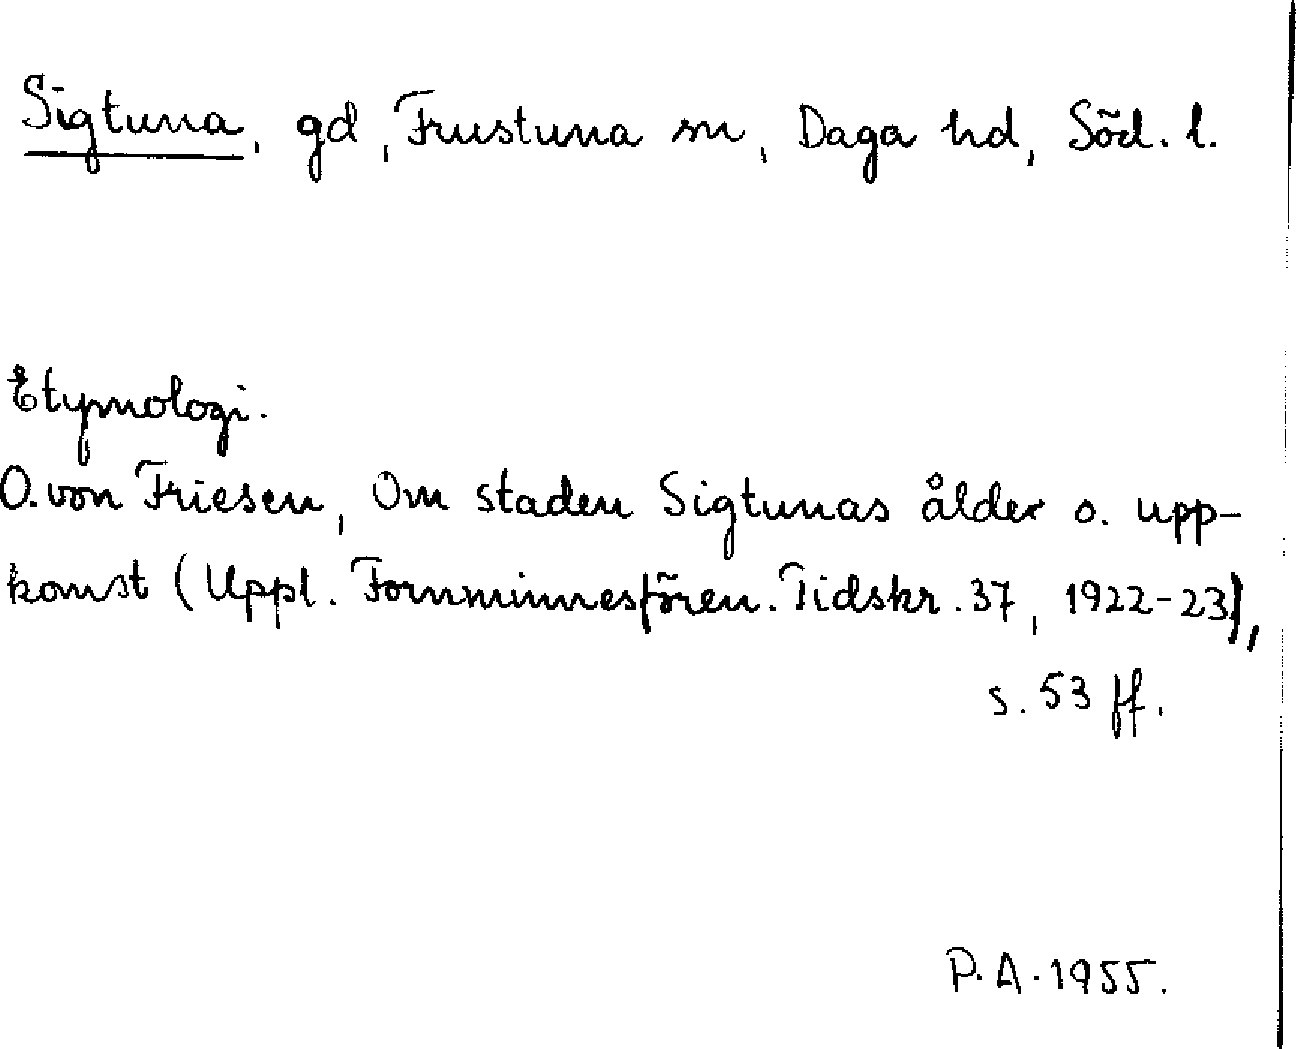 Sigtuna, gd, Frustuna sn, Daga hd, Söd. l.
Etymologi.
O. von Friesen, Om staden Sigtunas ålder o. upp-
komst (Uppl. Fornminnesfören. Tidskr. 37, 1922-23),
s. 53 ff.
P. A. 1955.